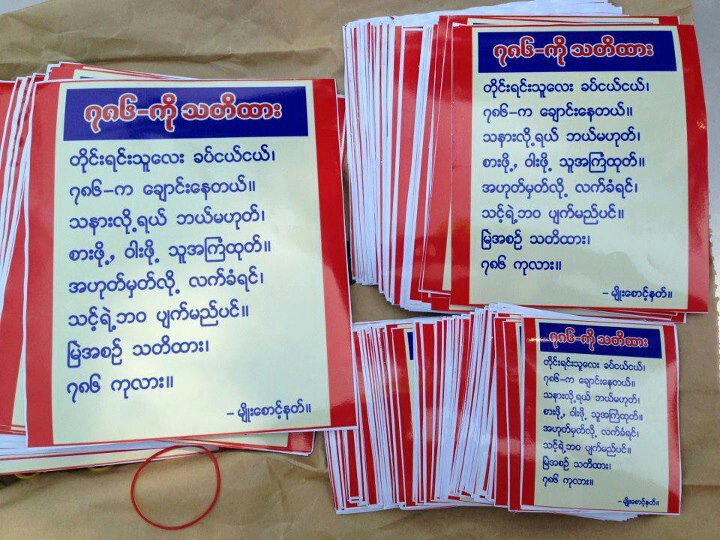 ၇၈၆-ကို သတိထား
တိုင်းရင်းသူလေး ခပ်ငယ်ငယ်၊
၇၈၆-က ချောင်းနေတယ်။
သနားလို့ရယ် ဘယ်မဟုတ်၊
စားဖို့, ဝါးဖို့ သူအကြံထုတ်။
အဟုတ်မှတ်လို့ လက်ခံရင်၊
သင့်ရဲ့ဘဝ ပျက်မည်ပင်။
မြဲအစဉ် သတိထား၊
၇၈၆ ကုလား။
- မျိုးစောင့်နတ်။
၇၈၆-ကို သတိထား
တိုင်းရင်းသူလေး ခပ်ငယ်ငယ်၊
၇၈၆-က ချောင်းနေတယ်။
သနားလို့ရယ် ဘယ်မဟုတ်၊
စားဖို့, ဝါးဖို့ သူအကြံထုတ်။
အဟုတ်မှတ်လို့ လက်ခံရင်၊
သင့်ရဲ့ဘဝ ပျက်မည်ပင်။
မြဲအစဉ် သတိထား၊
၇၈၆ ကုလား။
- မျိုးစောင့်နတ်။
၇၈၆-ကို သတိထား
တိုင်းရင်းသူလေး ခပ်ငယ်ငယ်၊
၇၈၆-က ချောင်းနေတယ်။
သနားလို့ရယ် ဘယ်မဟုတ်၊
စားဖို့, ဝါးဖို့ သူအကြံထုတ်။
အဟုတ်မှတ်လို့ လက်ခံရင်၊
သင့်ရဲ့ဘဝ ပျက်မည်ပင်။
မြဲအစဉ် သတိထား၊
၇၈၆ ကုလား။
- မျိုးစောင့်နတ်။